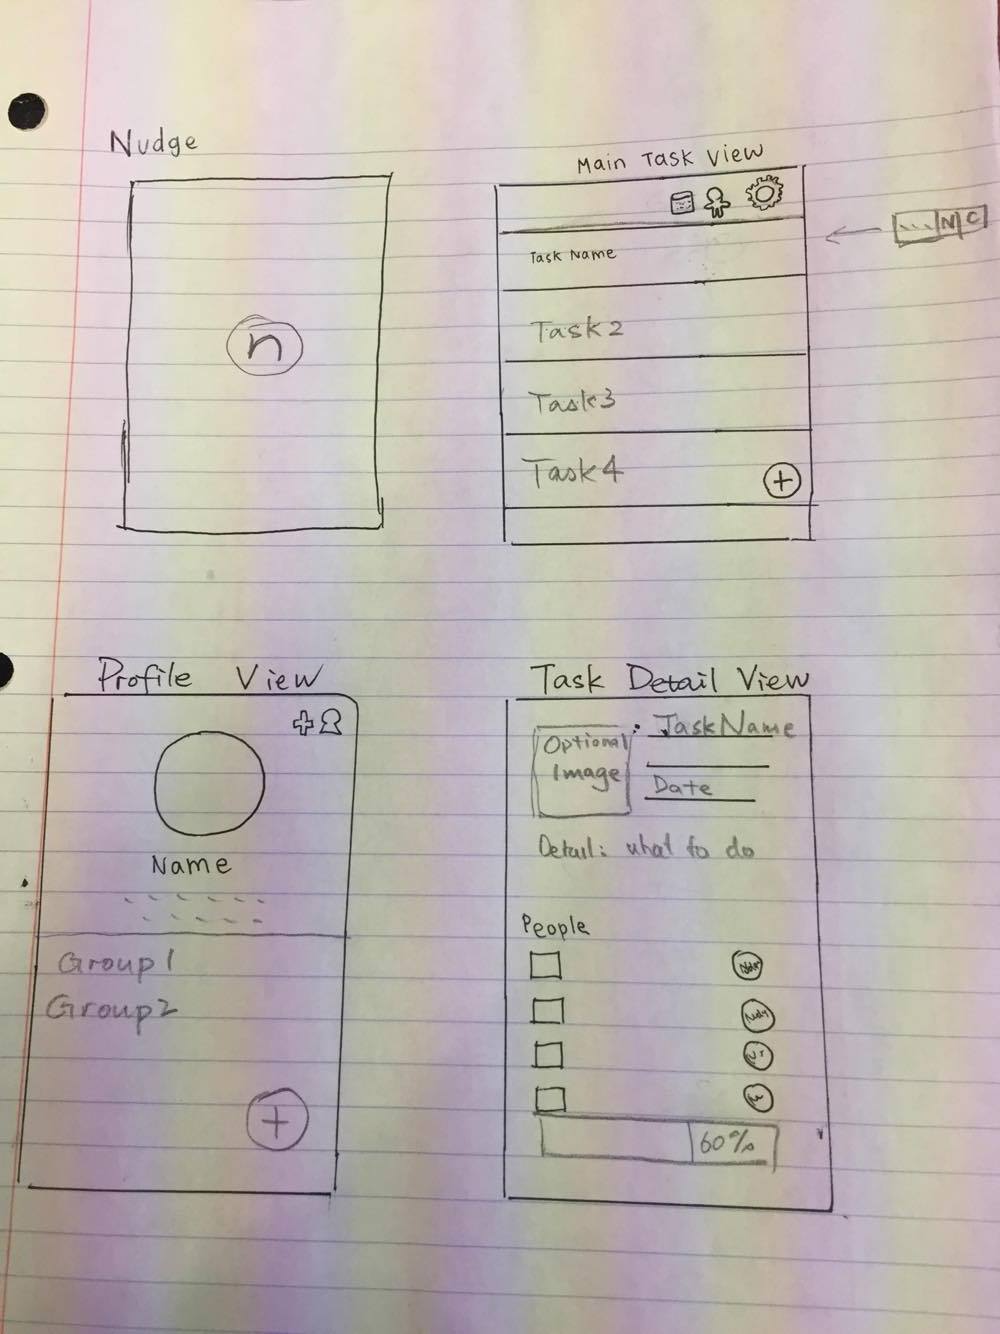 Nudge
n
Main Task View
... N C
Task Name
Task2
Task3
Task4
+
Profile View
+
Name
Group1
Group2
+
Task Detail View
Optional
Image
Task Name
Date
Detail: what to do
People
60%